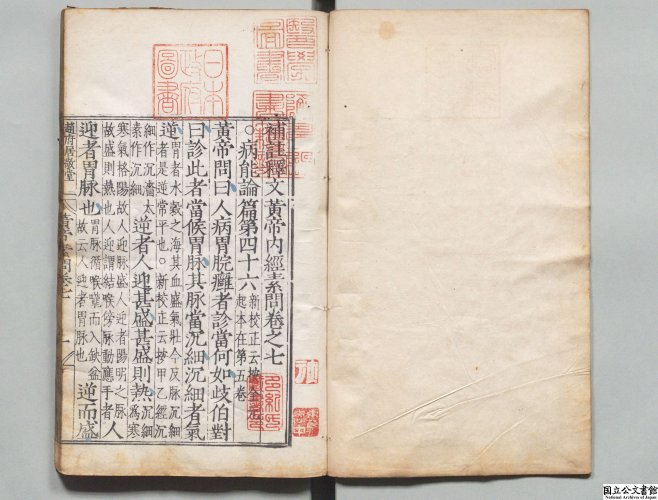 補註釋文黃帝內經素問卷之七
○病能論篇第四十六 新校正云按全元起本在第五卷
黃帝問曰人病胃脘癰者診當何如歧伯對
曰診此者當候胃脉其脉當沉細沉細者氣
逆 胃者水穀之海其血盛氣壯今反脉沉細者是逆常平也○新校正云按甲乙經沉細作沉濇太素作沉細 逆者人迎甚盛甚盛則熱 沉細為寒寒氣格陽故人迎脉盛人迎者陽明之脉故盛則熱也人迎謂結喉傍脉動應手者 人
迎者胃脉也 胃脉循喉嚨而入缺盆故云人迎者胃脉也 逆而盛
趙府居敬堂
日本政府圖書
国立公文書館
National Archives of Japan